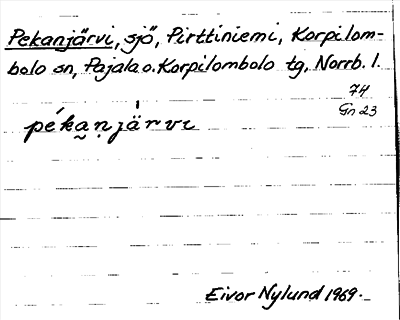 Pekanjärvi, sjö, Pirttiniemi, Korpilom-
bolo sn, Pajala o. Korpilombolo tg, Norrb. l.
74
Gn 23
pékaṇjärvi
Eivor Nylund 1969.